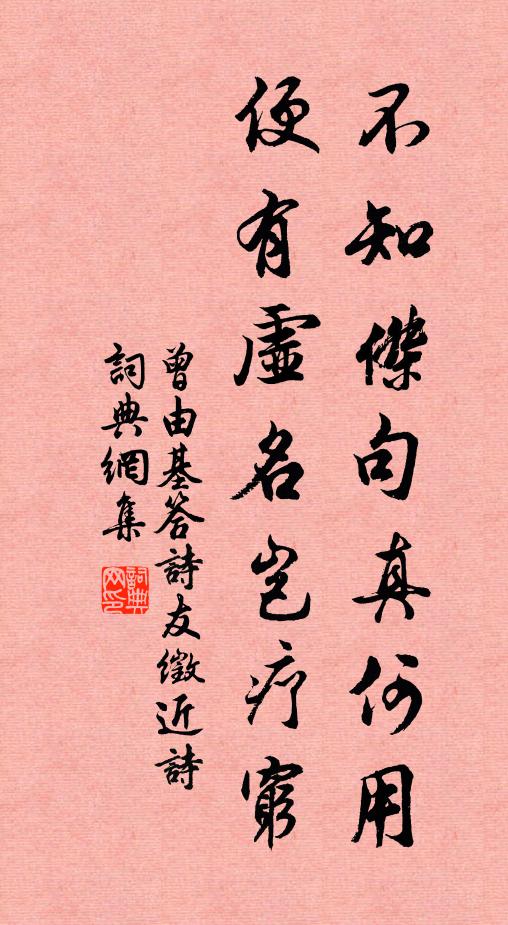 不知傑句真何用
便有虛名豈疗窮
曾由基答詩友徵近詩
詞典網集
詞典网印